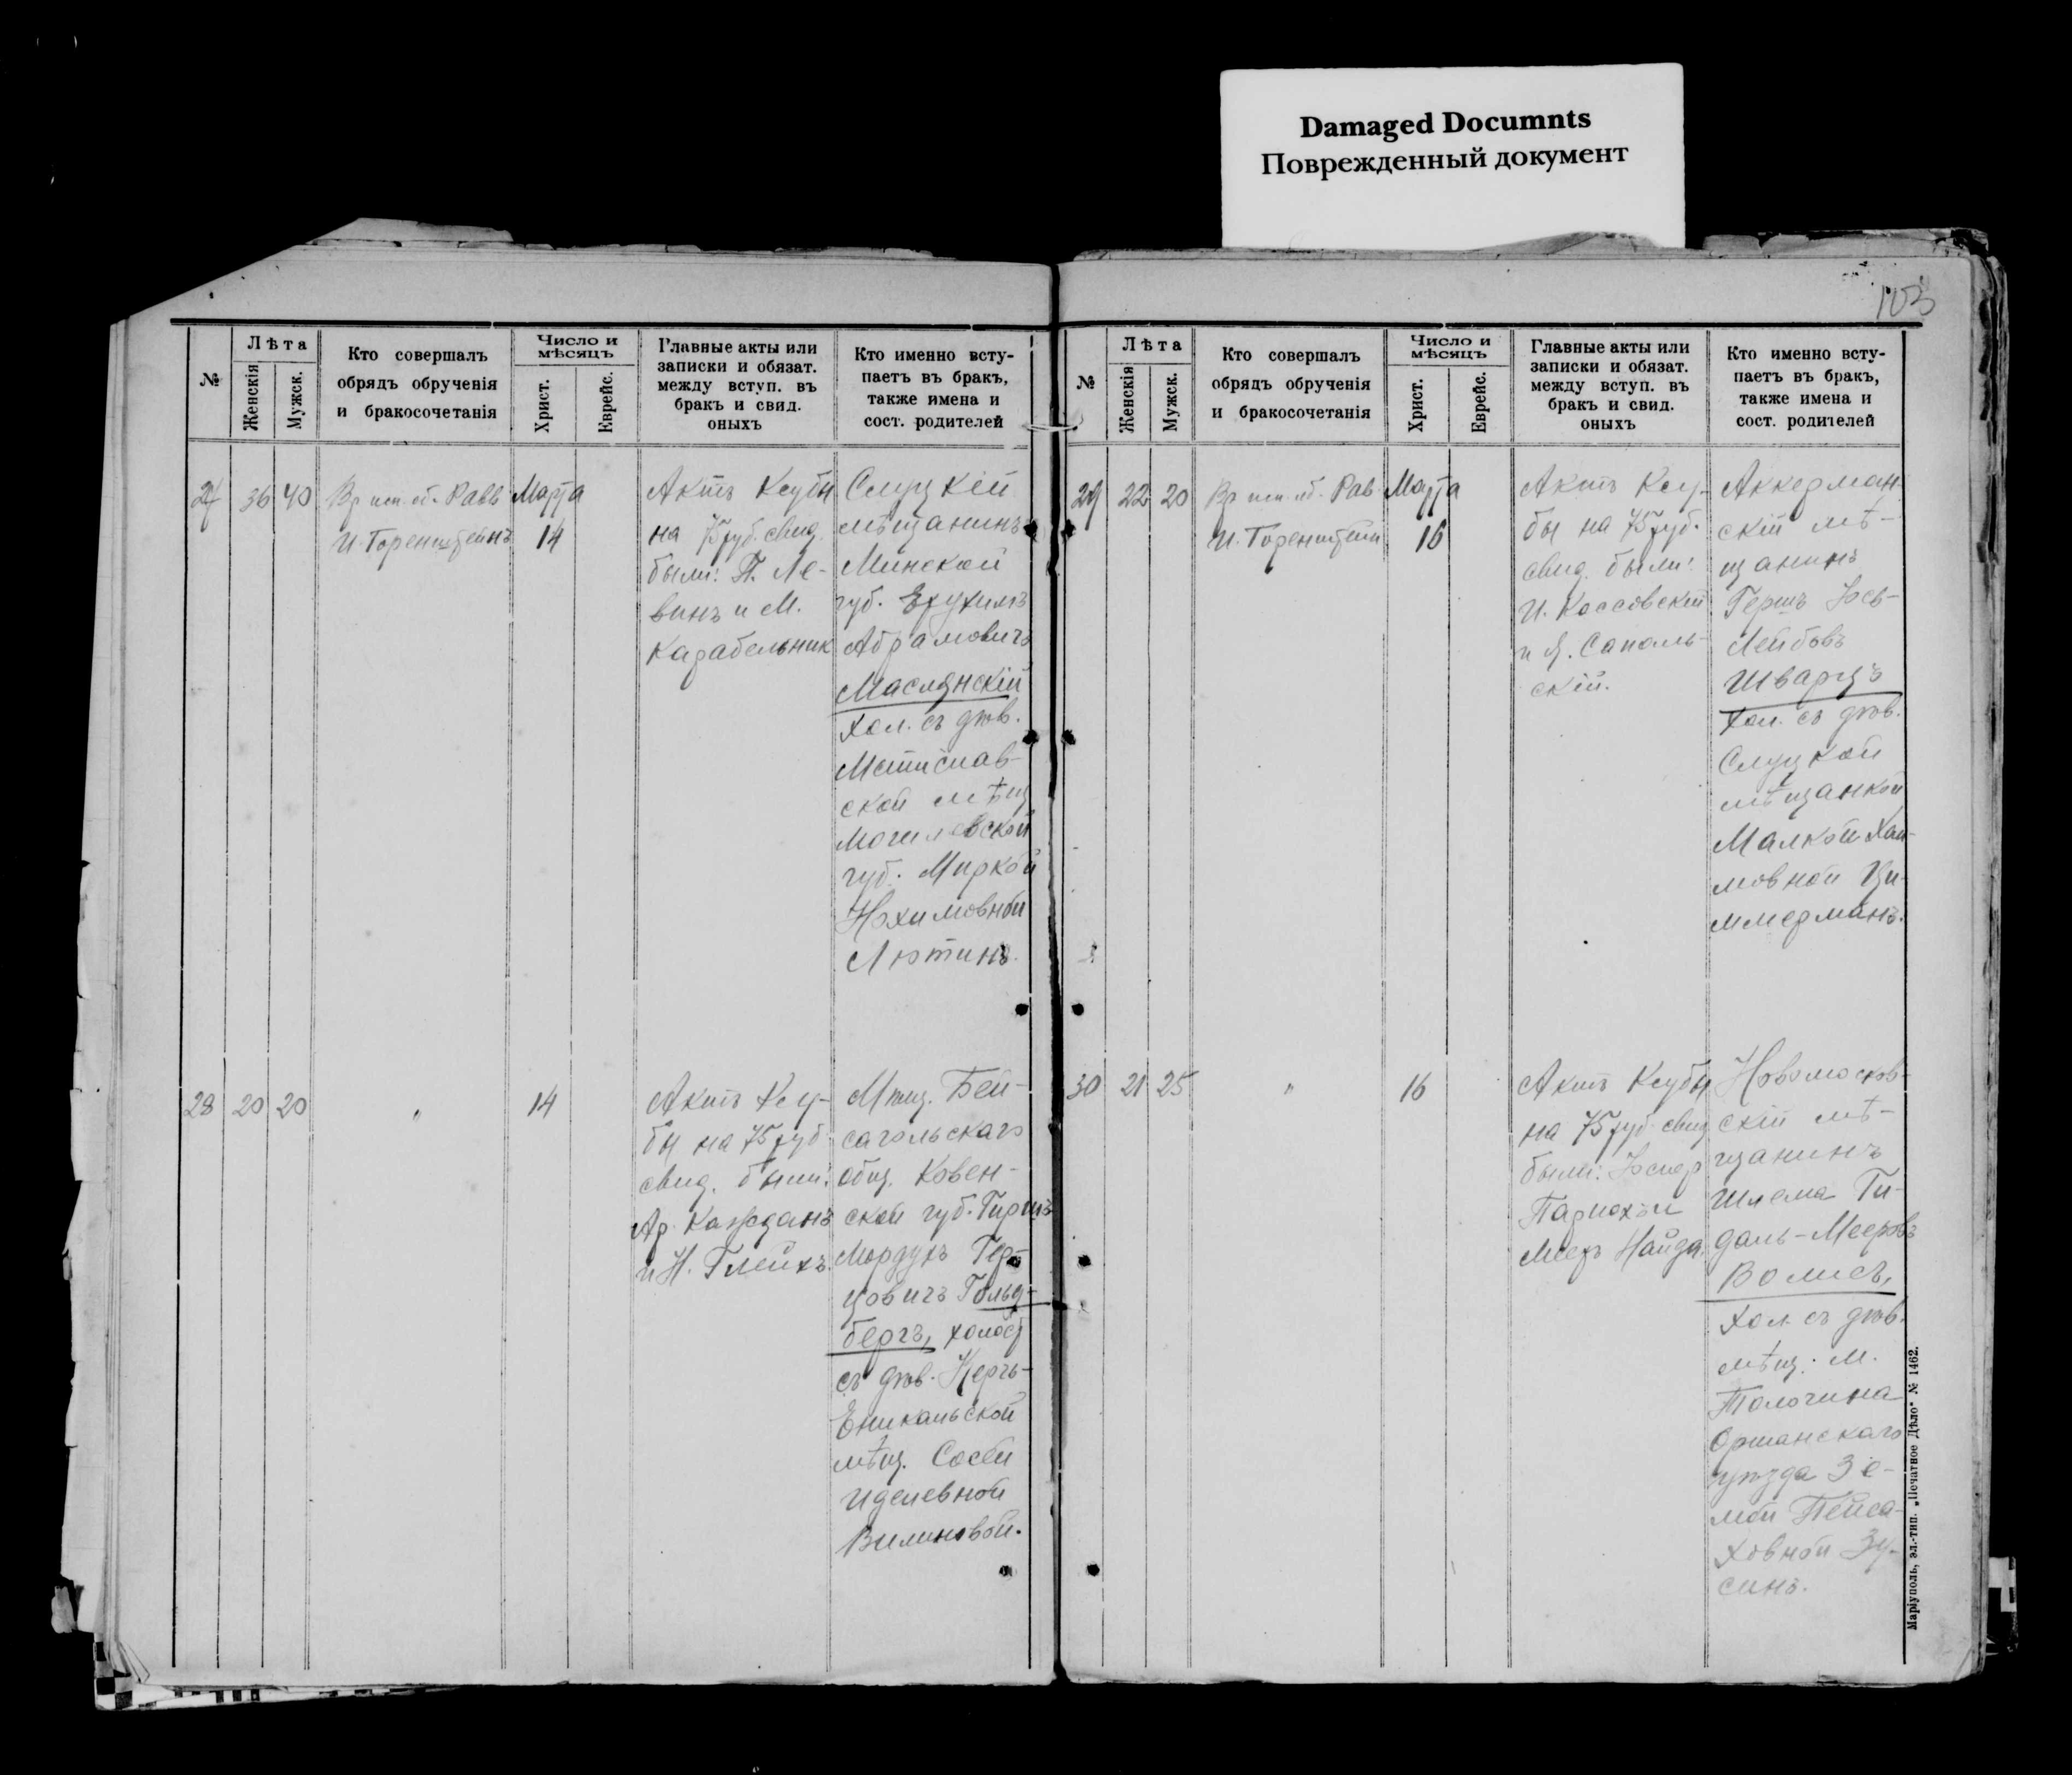 Damaged Documnts
Поврежденный документ
103
№
Лѣта
Женскія
Мужск.
Кто совершалъ
обрядъ обрученія
и бракосочетанія
Число и
мѣсяцъ
Христ.
Еврейс.
Главные акты или
записки и обязат.
между вступ. въ
бракъ и свид.
оныхъ
Кто именно всту-
паетъ въ бракъ,
также имена и
сост. родителей
27
36
40
Вр. исп. об. Равв
И. Горенштейнъ
Марта
14
Актъ Ксубы
на 75 руб. свид.
были: П. Ле-
винъ и М.
Карабельник
Слуцкій
мѣщанинъ
Минской
губ. Ерухимъ
Абрамовичъ
Маслянскій
хол. съ дѣв.
Мстислав-
ской мѣщ.
Могилевской
губ. Миркой
Нохимовной
Лютинъ.
28
20
20
"
14
Актъ Ксу-
бы на 75 руб.
свид. были:
Ар. Кажданъ
и Н. Глейхъ.
Мѣщ. Бей-
сагольскаго
общ. Ковен-
ской губ. Гиршъ
Мордухъ Гер-
цовичъ Гольд-
бергъ, холост
съ дѣв. Керчь-
Еникальской
мѣщ. Сосей
Иделевной
Вилиновой.
№
Лѣта
Женскія
Мужск.
Кто совершалъ
обрядъ обрученія
и бракосочетанія
Число и
мѣсяцъ
Христ.
Еврейс.
Главные акты или
записки и обязат.
между вступ. въ
бракъ и свид.
оныхъ
Кто именно всту-
паетъ въ бракъ,
также имена и
сост. родителей
29
22
20
Вр. исп. об. Рав
И. Горенштейн
Марта
16
Актъ Ксу-
бы на 75 руб.
свид. были:
И. Коссовскій
и Я. Саполь-
скій.
Аккерман-
скій мѣ-
щанинъ
Гершъ Іось-
Лейбовъ
Шварцъ
хол. съ дѣв.
Слуцкой
мѣщанкой
Малкой Хаи-
мовной Ци-
ммерманъ.
30
21
25
"
16
Актъ Ксубы
на 75 руб. свид
были:
и
Меер Найда.
Новомосков-
скій мѣ-
щанинъ
Шлема Ги-
даль-Мееровъ
Волисъ,
хол. съ дѣв.
мѣщ. М.
Толочина
Оршанскаго
уѣзда Зе-
мой Пейса-
ховной Зу-
синъ.
Маріуполь, эл.-тип. „Печатное Дѣло" № 1462.